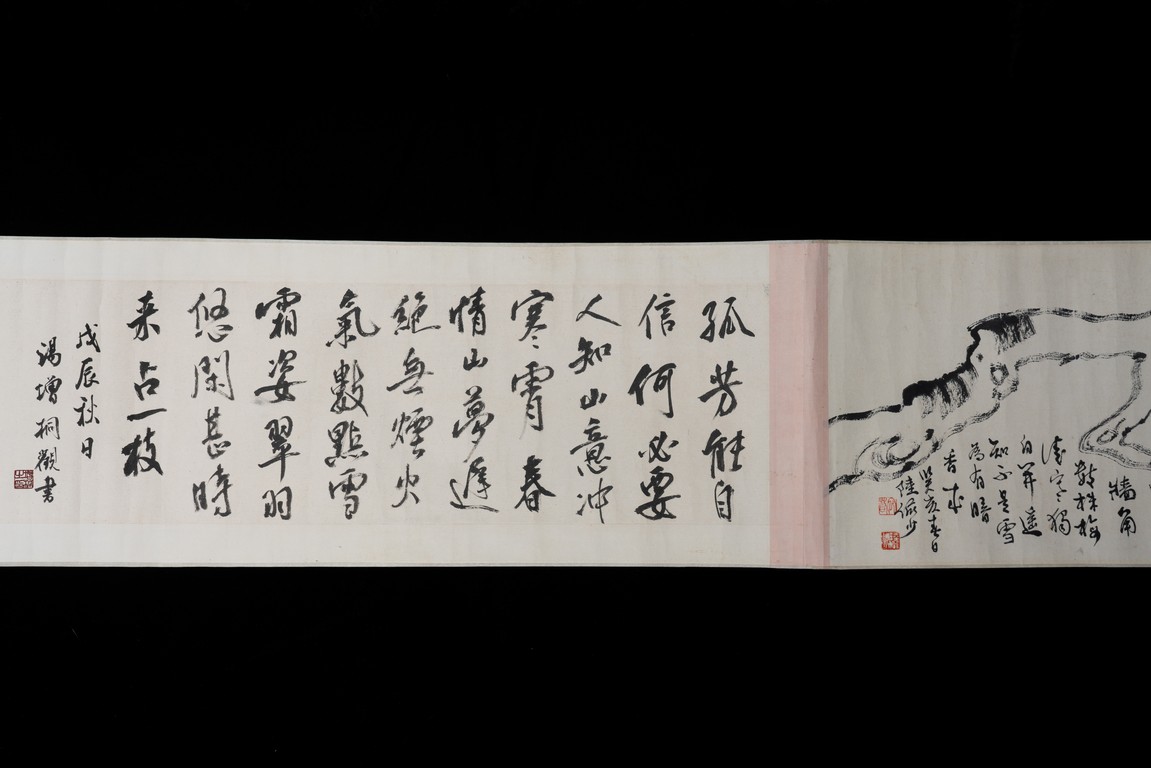 墻角
數株梅
凌寒獨
自開遙
知不是雪
為有暗
香來
癸亥春日
陸儼少
孤芳能自
信何必要
人知山意冲
寒霄春
情山夢遲
絕無煙火
氣數點雪
霜姿翠羽
悠閑甚時
来占一枝
戊辰秋日
湯增桐觀書